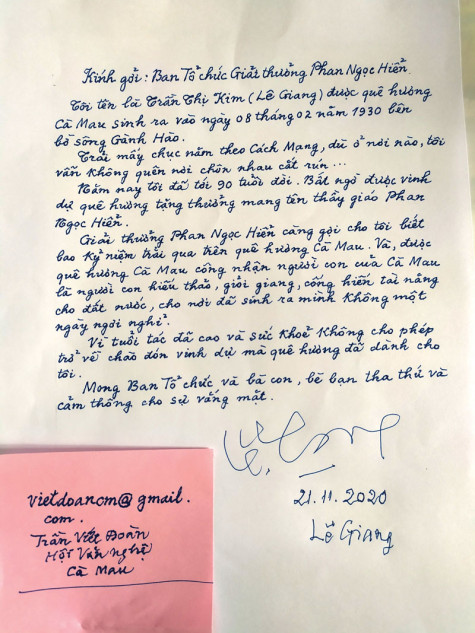 Kính gởi: Ban Tổ chức Giải thưởng Phan Ngọc Hiển.
Tôi tên là Trần Thị Kim (Lê Giang) được quê hương
Cà Mau sinh ra vào ngày 08 tháng 02 năm 1930 bên
bờ sông Gành Hào.
Trải mấy chục năm theo Cách Mạng, dù ở nơi nào, tôi
vẫn không quên nơi chôn nhau cắt rún...
Năm nay tôi đã tới 90 tuổi đời. Bất ngờ được vinh
dự quê hương tặng thưởng mang tên thầy giáo Phan
Ngọc Hiển.
Giải thưởng Phan Ngọc Hiển càng gợi cho tôi biết
bao kỷ niệm trải qua trên quê hương Cà Mau. Và, được
quê hương Cà Mau công nhận người con của Cà Mau
là người con hiếu thảo, giỏi giang, cống hiến tài năng
cho đất nước, cho nơi đã sinh ra mình không một
ngày ngơi nghỉ.
Vì tuổi tác đã cao và sức khoẻ không cho phép
trở về chào đón vinh dự mà quê hương đã dành cho
tôi.
Mong Ban Tổ chức và bà con, bè bạn tha thứ và
cảm thông cho sự vắng mặt.
21.11.2020
Lê Giang
vietdoancm@gmail.
com.
Trần Việt Đoàn
Hội Văn nghệ
Cà Mau